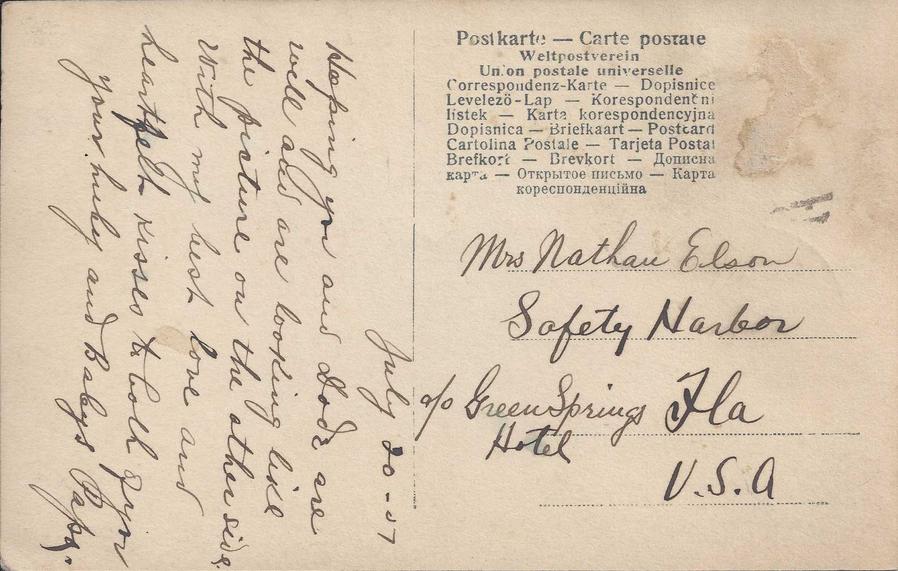 Postkarte — Carte postale
Weltpostverein
Union postale universelle
Correspondenz-Karte — Dopisnice
Levelező-Lap — Korespondenční
lístek — Karta korespondencyjna
Dopisnica — Briefkaart — Postcard
Cartolina Postale — Tarjeta Postal
Brefkort — Brevkort — Дописна
карта — Открытое письмо — Карта
кореспонденційна
Mrs Nathan Elson
Safety Harbor
c/o Green Springs Fla
Hotel
U.S.A
July 20-07
Hoping you and Dode are
well and are looking like
the picture on the other side.
With my best love and
heartfelt kisses to both of you
your huby and Babys Papa.